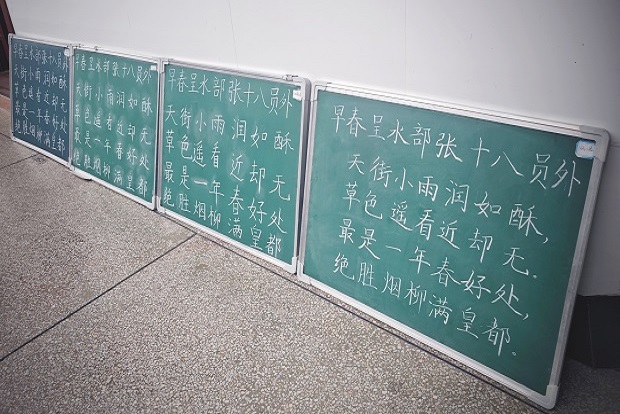 早春呈水部张十八员外
天街小雨润如酥
草色遥看近却无
最是一年春好处
绝胜烟柳满皇都
早春呈水部张十八员外
天街小雨润如酥
草色遥看近却无
最是一年春好处
绝胜烟柳满皇都
早春呈水部张十八员外
天街小雨润如酥
草色遥看近却无
最是一年春好处
绝胜烟柳满皇都
早春呈水部张十八员外
天街小雨润如酥，
草色遥看近却无．
最是一年春好处，
绝胜烟柳满皇都。